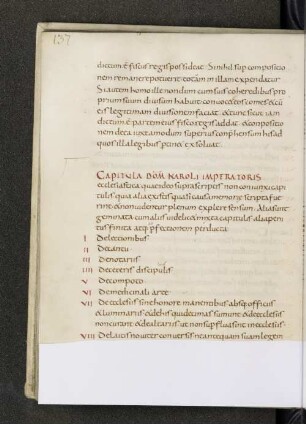 137
dictum & fiscus regis possideat. Si nihil sup compositio
nem remanere potuerit totam in illam expendatur
Si autem homo ille nondum cum suis coheredibus pro
prium suum diuisum habuit conuocet eos comes & cum
eis legitimam diuisionem faciat. & tunc sicut iam
dictum & partem eius fisco regis addat & compositio
nem de ea iuxta modum superius comprehensum his ad
quos illa legibus pertinet exsoluat.
CAPITULA DOM KAROLI IMPERATORIS
ecclesiastica quae ideo suprascriptis non coniunxi capi
tulis quia alia ex istis quasi causa memorie scripta fue
runt & non uidentur plenum explere sensum. Alia sunt
geminata cum aliis uidelicet mixta capitulis alia peni
tus finita atq; p fectionem perducta
I De lectionibus
II De cantu
III De notariis
IIII De ceteris disciplulis
V De compoto
VI De medicinali arte
VII De ecclesiis sine honore manentibus absq; officiis
& luminariis & de his qui decimas sumunt & de ecclesiis
non curant & de altaribus ut non sup fluant in ecclesiis
VIII De laicis nouiter conuersis ne antequam suam legem